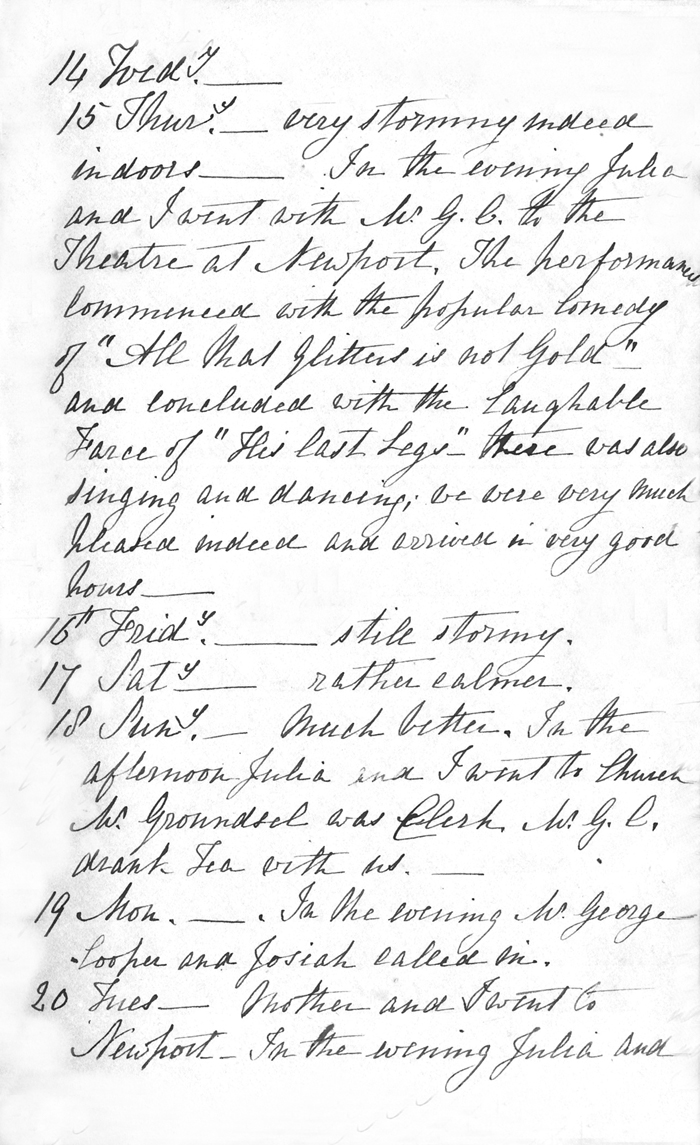 14 Wed.y ——
15 Thur.y — very stormy indeed
indoors —— In the evening Julia
and I went with Mr. G. C. to the
Theatre at Newport. The performance
commenced with the popular Comedy
of "All that glitters is not Gold"
and concluded with the laughable
Farce of "His last Legs" there was also
singing and dancing; we were very much
pleased indeed and arrived in very good
hours ——
16th Frid.y —— still stormy.
17 Sat.y —— rather calmer.
18 Sun.y — Much better. In the
afternoon Julia and I went to Church
Mr. Groundsel was Clerk. Mr. G. C.
drank Tea with us. —
19 Mon. —. In the evening Mr. George
Cooper and Josiah called in.
20 Tues — Mother and I went to
Newport — In the evening Julia and